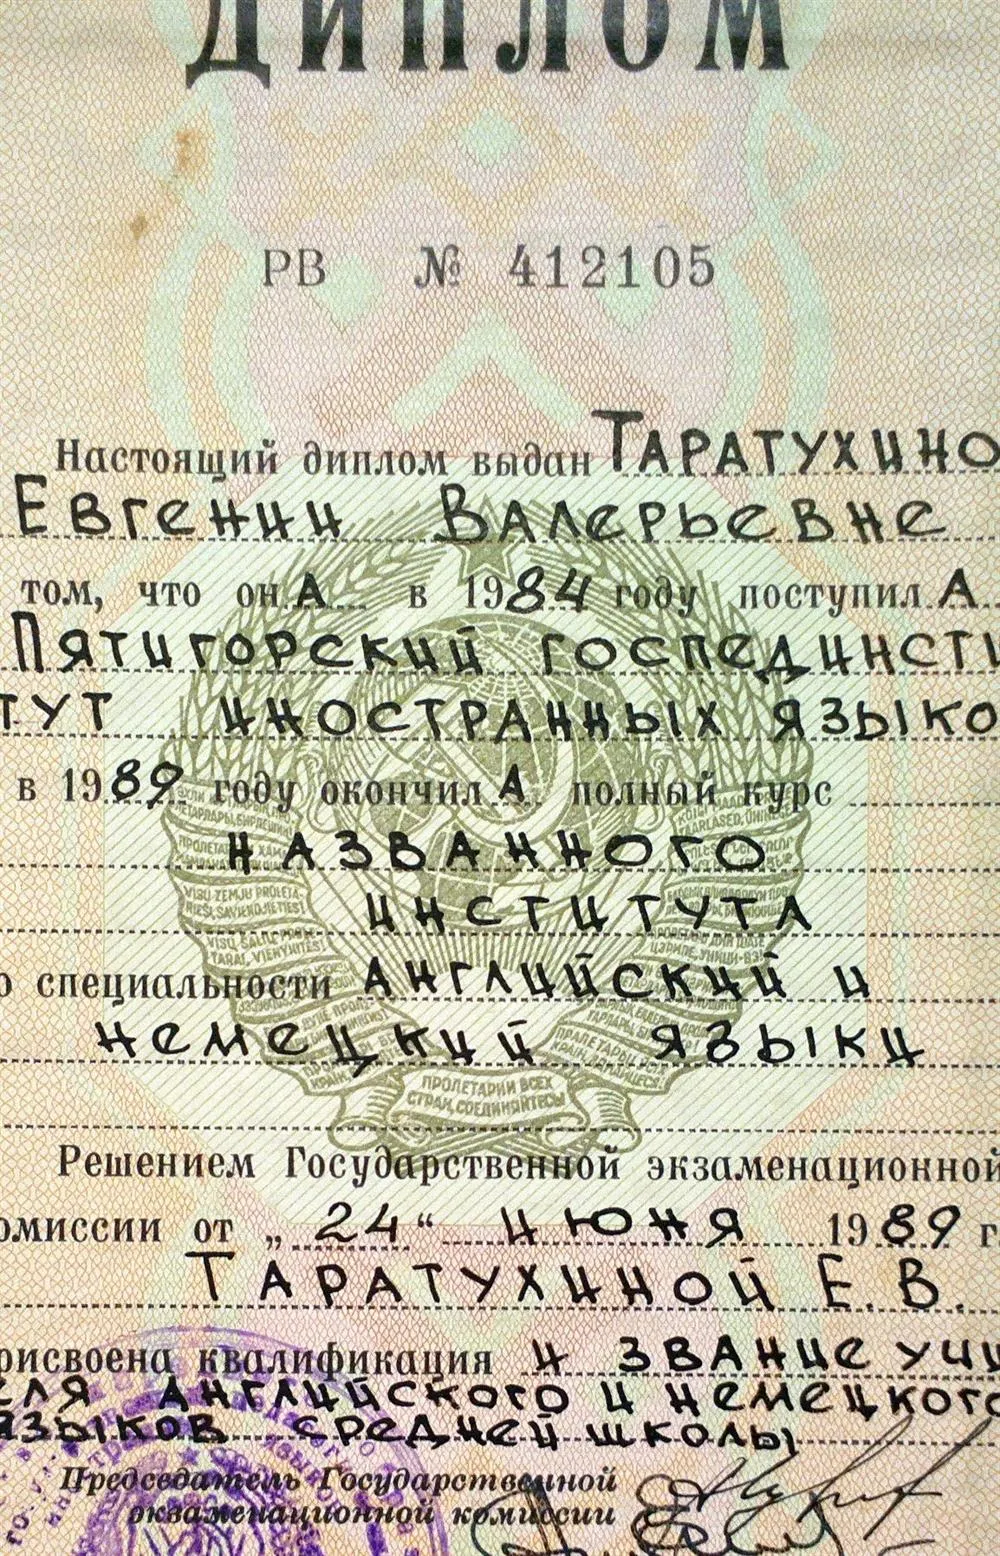 ДИПЛОМ
РВ № 412105
Настоящий диплом выдан ТАРАТУХИНО
ЕВГЕНИИ ВАЛЕРЬЕВНЕ
том, что он А в 1984 году поступил А
ПЯТИГОРСКИЙ ГОСПЕДИНСТИ
ТУТ ИНОСТРАННЫХ ЯЗЫКО
в 1989 году окончил А полный курс
НАЗВАННОГО
ИНСТИТУТА
о специальности АНГЛИЙСКИЙ И
НЕМЕЦКИЙ ЯЗЫКИ
ПРОЛЕТАРИИ ВСЕХ
СТРАН, СОЕДИНЯЙТЕСЬ!
Решением Государственной экзаменационной
омиссии от „24“ ИЮНЯ 1989 г
ТАРАТУХИНОЙ Е. В.
рисвоена квалификация И ЗВАНИЕ УЧИ
ЕЛЯ АНГЛИЙСКОГО И НЕМЕЦКОГО
ЯЗЫКОВ СРЕДНЕЙ ШКОЛЫ
Председатель Государственной
экзаменационной комиссии